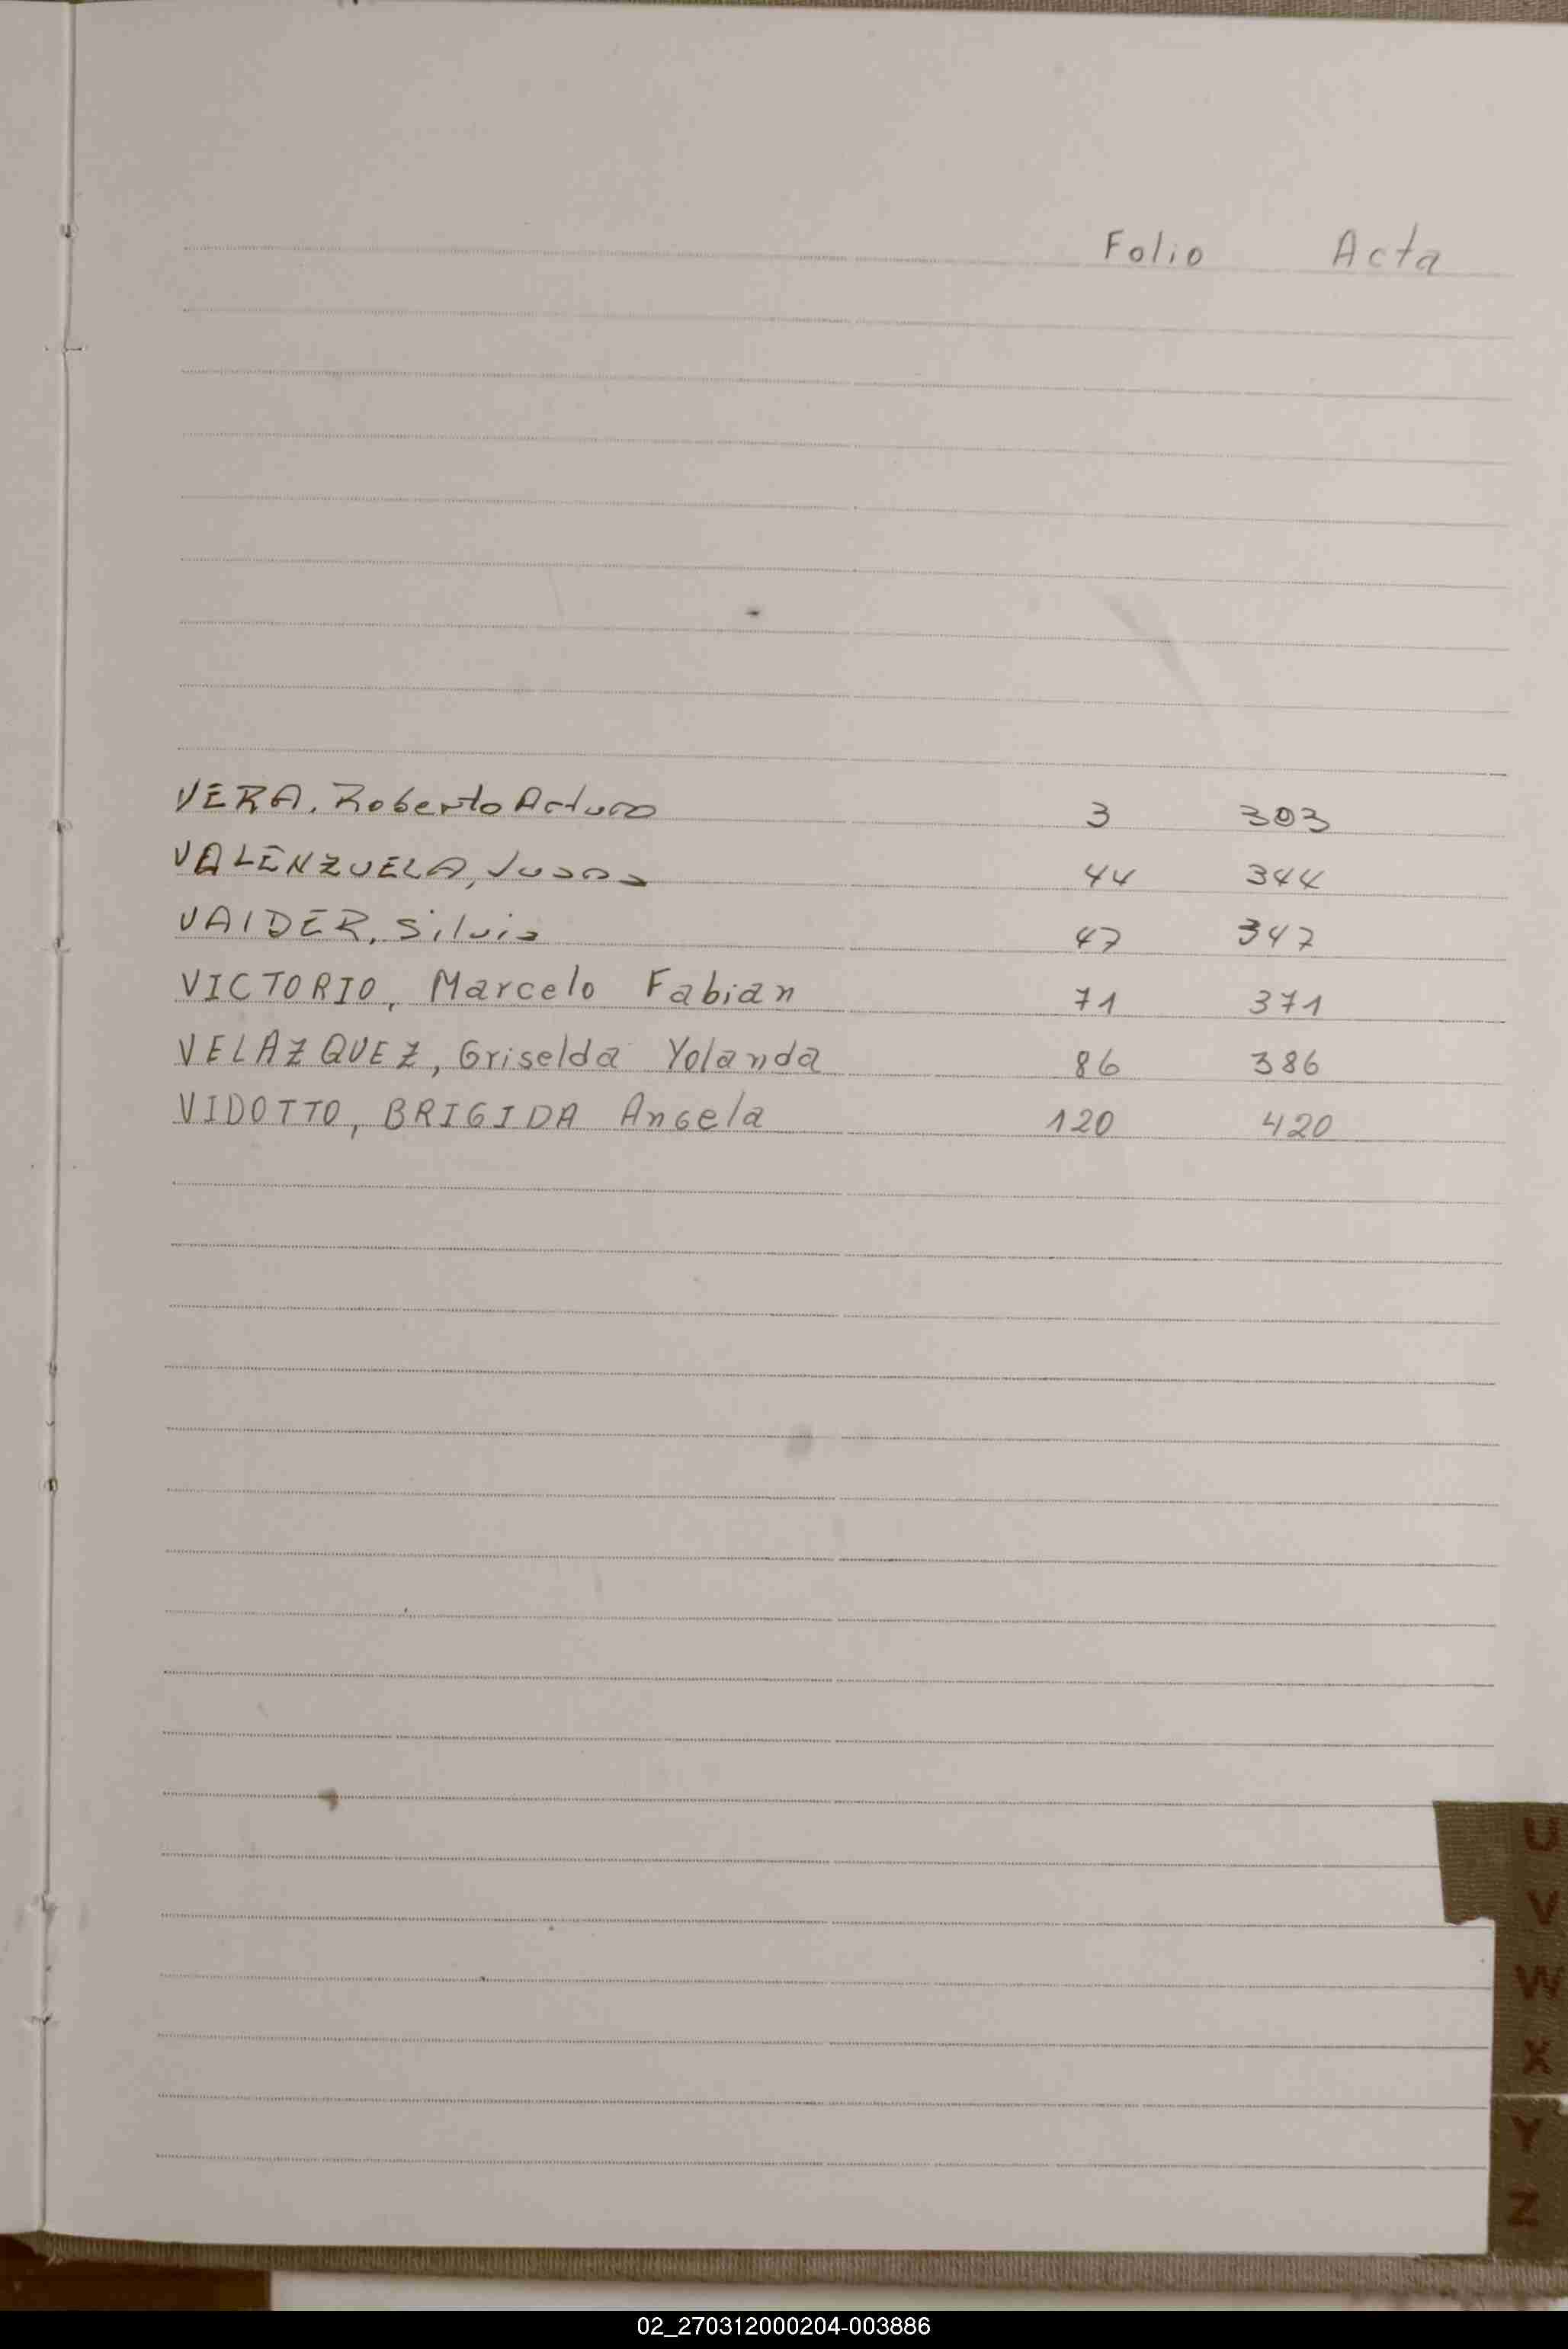 Folio Acta
VERA, Roberto Arturo 3 303
VALENZUELA, Juana 44 344
VAIDER, Silvia 47 347
VICTORIO, Marcelo Fabian 71 371
VELAZQUEZ, Griselda Yolanda 86 386
VIDOTTO, BRIGIDA Angela 120 420
U
V
W
X
Y
Z
02_270312000204-003886